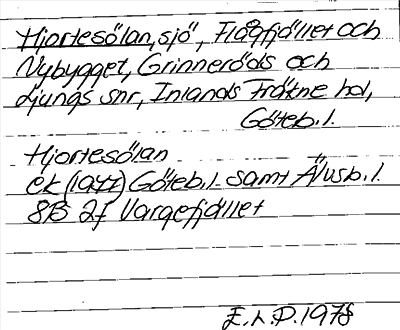 Hjortesölan, sjö, Flågfjället och
Nybygget, Grinneröds och
Ljungs snr, Inlands Fräkne hd,
Göteb. l.
Hjortesölan
ek (1977) Göteb. l. samt Älvsb. l.
8B 2f Vargefjället
E.L.P. 1978